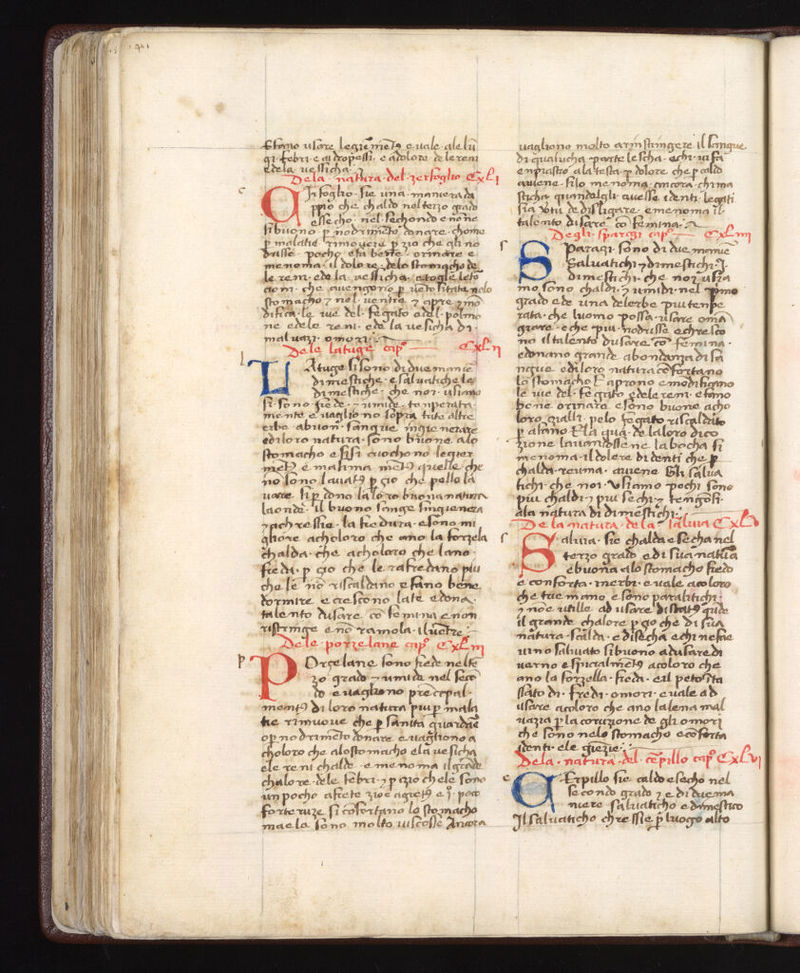 Efano usare legieme͞t9 e uale ale lu͞
gi febri e ai dropessi e adolore dele reni
e dela uessicha
Dela natura del zerfoglio CxLi
c
Q
ppio che chaldo nel terzo grado
esecho nel sechondo e no͞ne
sibuono p͞ nodrime͞to donare chome
p͞ malatie rimouere p͞ zio che gli no
drisse pocho efa bene orinare e
menoma il dolore delo stomacho de
le reni ede la uessicha
cioni che auengono p͞ uentositate nelo
stomacho ⁊ nel uentre ⁊ apre ⁊ mo͞
difica le uie del fegato edel polmo
ne edele reni ede la uesicha di
maluazi omori
Dele latuge cap° CxLii
l
LAtuge si sono di due manie͞
dimestiche e saluatiche le
dimestiche che noi usiamo
si sono fiede ⁊ umide temperata
mente e uagliono sopra tute altre
erbe abuon sangue ingienerare
ediloro natura sono buone alo
stomacho e sisi cuochono legier
me͞t9 e masima me͞t9 quelle che
no͞ sono lauat9 p͞ cio che pello la
uare si p͞dono la loro buona natura
laonde il buono sange singienera
⁊ achressie la fiedura e sono mi
gliore acholoro che ano la forzela
chalda che acholoro che lano
fieda p͞ cio che le rafredano piu
che le no͞ riscaldano e fano bene
dormire e crescono late e dona
talento dusare co͞ femina e non
ristringe e no͞ ramola il ue͞tre
Dele porzelane cap° CxLiii
p
POrcelane sono fiede nelte
zo grado ⁊ umide nel seco͞
do e uagliono pre͞cepal
ment9 di loro natura piu p͞ mala
tie rimuoue che p͞ sanita guardae͞
op͞ no͞drime͞to donare e uagliono a
choloro che alostomacho ela uesicha
ele reni chalde e menoma il grade͞
chalore dele febri ⁊ p͞ zio chele sono
un pocho afrete zioe agret9 e poco
forteruze si co͞fortano lo stomacho
maele sono molto uiscosse Ancora
uagliono molto arinstringere il sangue
di qualucha parte le scha echi ui fa
enpiastro ala testa p͞ dolore che p͞ caldo
auene silo menoma ancora chi ma
sticha quandolgli auesse identi legati
sia uotu de disligare e menoma il
talento disare co͞ femina
Degli sparagi cap° CxLiiii
s
SParagi sono di due manie͞
Saluatichi ⁊ dimestichi I
dimestichi che noi usia
mo sono chaldi ⁊ umidi nel p͞mo
grado ede una delerbe piu tenpe
rata che luomo possa usare oma͞
giare e che piu nodrisse echresco
no il talento dusare co͞ femina
edonano grande abondanza di sa͞
ngue ediloro natura co͞fortano
lo stomacho E aprono emodificano
le uie del fegato edele reni efano
bene orinare e sono buone acho
loro gialli pelo fegato riscaldato
p͞ alcuno Ela qua de laloro dico
zione lauandosene la bocha si
menoma il dolere di denti che p͞
chalda reuma auene Gli salua
tichi che noi usiamo pochi sono
piu chaldi ⁊ piu sechi ⁊ tengosi
ala natura di dimestichi
De la natura dela saluia CxLv
s
Saluia sie chalda e secha nel
terzo grado e di sua natu͞a
ebuona alo stomacho fiedo
e conforta inerbi e uale acoloro
che tue mano e sono paralitichi
⁊ noe utille ad usare distat9 gade
il grande chalore p͞ zo che di sua
natura scalda e disecha echi nesue
uino saluiato sibuono adusare di
uerno e spicialme͞t9 acoloro che
ano la forzella fieda eil petosita
ssato di fredi omori e uale ad
usare acoloro che ano lalena mal
uazia p͞ la coruzione de gli omori
che sono nelo stomacho e co͞forta
identi ele giezie
Dela natura del ce͞pillo cap° CxLvi
c
CErpillo sie caldo e secho nel
secondo grado ⁊ e di due ma
niere saluaticho e dimestico
Il saluaticho chressie p͞ luogo alto